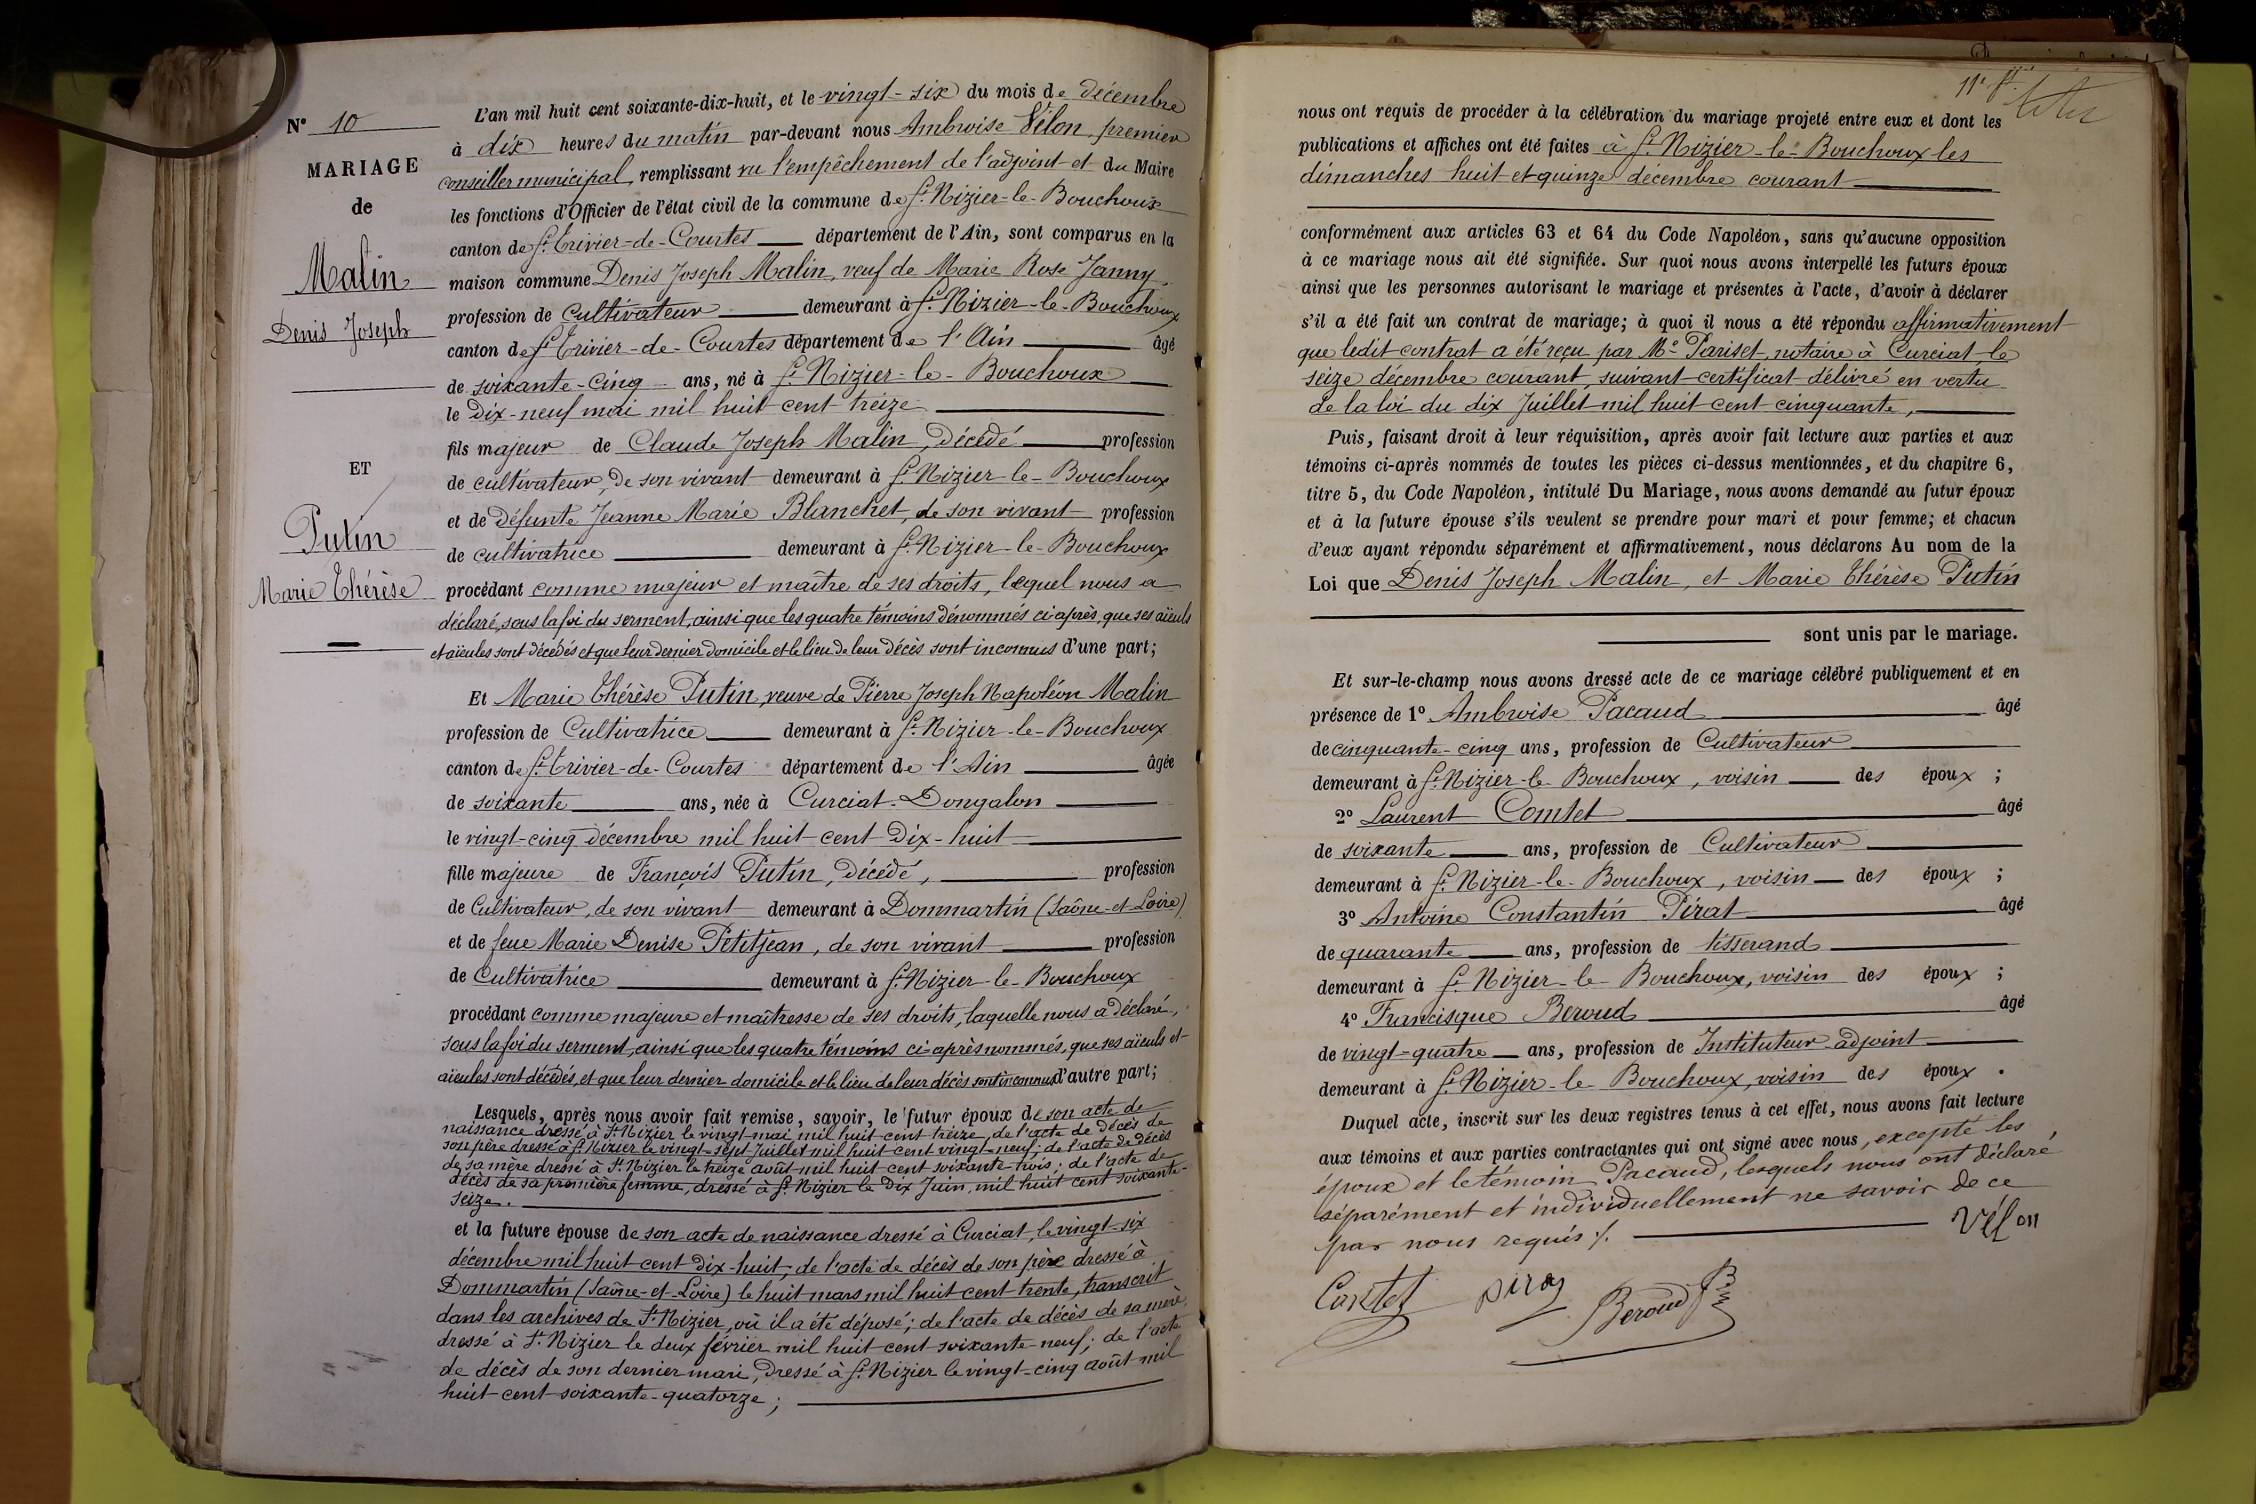 N° 10
MARIAGE
de
Malin
Denis Joseph
ET
Putin
Marie Thérèse
L'an mil huit cent soixante-dix-huit, et le vingt-six du mois de décembre
à dix heures du matin par-devant nous Ambroise Vélon, premier
conseiller municipal, remplissant vu l'empêchement de l'adjoint et du Maire
les fonctions d'Officier de l'état civil de la commune de St Nizier-le-Bouchoux
canton de St Trivier-de-Courtes département de l'Ain, sont comparus en la
maison commune Denis Joseph Malin, veuf de Marie Rose Janny
profession de Cultivateur demeurant à St Nizier-le-Bouchoux
canton de St Trivier-de-Courtes département de l'Ain âgé
de soixante-cinq ans, né à St Nizier-le-Bouchoux
le Dix-neuf mai mil huit cent treize
fils majeur de Claude Joseph Malin, Décédé profession
de cultivateur, de son vivant demeurant à St Nizier-le-Bouchoux
et de Défunte Jeanne Marie Blanchet, de son vivant profession
de cultivatrice demeurant à St Nizier-le-Bouchoux
procédant comme majeur et maître de ses droits, lequel nous a
déclaré, sous la foi du serment, ainsi que les quatre témoins dénommés ci-après, que ses aïeuls
et aïeules sont décédés et que leur dernier domicile et le lieu de leur décès sont inconnus d'une part;
Et Marie Thérèse Putin, veuve de Pierre Joseph Napoléon Malin
profession de Cultivatrice demeurant à St Nizier-le-Bouchoux
canton de St Trivier-de-Courtes département de l'Ain âgée
de soixante ans, née à Curciat-Dongalon
le vingt-cinq décembre mil huit cent Dix-huit
fille majeure de François Putin, Décédé, profession
de Cultivateur, de son vivant demeurant à Dommartin (Saône-et-Loire)
et de feue Marie Denise Petitjean, de son vivant profession
de Cultivatrice demeurant à St Nizier-le-Bouchoux
procédant comme majeure et maîtresse de ses droits, laquelle nous a Déclaré,
sous la foi du serment, ainsi que les quatre témoins ci-après nommés, que ses aïeuls et
aïeules sont décédés, et que leur dernier domicile et le lieu de leur décès sont inconnus d'autre part;
Lesquels, après nous avoir fait remise, savoir, le futur époux de son acte de
naissance dressé à St Nizier le vingt mai mil huit cent treize, de l'acte de Décès de
son père dressé à St Nizier le vingt-sept Juillet mil huit cent vingt-neuf; de l'acte de Décès
de sa mère dressé à St Nizier le treize août mil huit cent soixante-trois; de l'acte de
décès de sa première femme, dressé à St Nizier le Dix Juin mil huit cent soixante-
seize.
et la future épouse de son acte de naissance dressé à Curciat, le vingt-six
décembre mil huit cent Dix-huit, de l'acte de décès de son père dressé à
Dommartin (Saône-et-Loire) le huit mars mil huit cent trente, transcrit
dans les archives de St Nizier, où il a été déposé; de l'acte de décès de sa mère,
dressé à St Nizier le deux février mil huit cent soixante-neuf; de l'acte
de décès de son dernier mari, Dressé à St Nizier le vingt-cinq août mil
huit cent soixante-quatorze;
11e ft.
nous ont requis de procéder à la célébration du mariage projeté entre eux et dont les
publications et affiches ont été faites à St Nizier-le-Bouchoux les
dimanches huit et quinze décembre courant
conformément aux articles 63 et 64 du Code Napoléon, sans qu'aucune opposition
à ce mariage nous ait été signifiée. Sur quoi nous avons interpellé les futurs époux
ainsi que les personnes autorisant le mariage et présentes à l'acte, d'avoir à déclarer
s'il a été fait un contrat de mariage; à quoi il nous a été répondu affirmativement
que ledit contrat a été reçu par Me Pariset, notaire à Curciat le
seize décembre courant, suivant certificat délivré en vertu
de la loi du dix Juillet mil huit cent cinquante,
Puis, faisant droit à leur réquisition, après avoir fait lecture aux parties et aux
témoins ci-après nommés de toutes les pièces ci-dessus mentionnées, et du chapitre 6,
titre 5, du Code Napoléon, intitulé Du Mariage, nous avons demandé au futur époux
et à la future épouse s'ils veulent se prendre pour mari et pour femme; et chacun
d'eux ayant répondu séparément et affirmativement, nous déclarons Au nom de la
Loi que Denis Joseph Malin, et Marie Thérèse Putin
sont unis par le mariage.
Et sur-le-champ nous avons dressé acte de ce mariage célébré publiquement et en
présence de 1° Ambroise Pacaud âgé
de cinquante-cinq ans, profession de Cultivateur
demeurant à St Nizier-le-Bouchoux, voisin des époux;
2° Laurent Comtet âgé
de soixante ans, profession de Cultivateur
demeurant à St Nizier-le-Bouchoux, voisin des époux;
3° Antoine Constantin Pirat âgé
de quarante ans, profession de tisserand
demeurant à St Nizier-le-Bouchoux, voisin des époux;
4° Francisque Beroud âgé
de vingt-quatre ans, profession de Instituteur-adjoint
demeurant à St Nizier-le-Bouchoux, voisin des époux.
Duquel acte, inscrit sur les deux registres tenus à cet effet, nous avons fait lecture
aux témoins et aux parties contractantes qui ont signé avec nous, excepté les
époux et le témoin Pacaud, lesquels nous ont déclaré
séparément et individuellement ne savoir de ce
par nous requis ./.
Vélon
Comtet Pirat Beroud